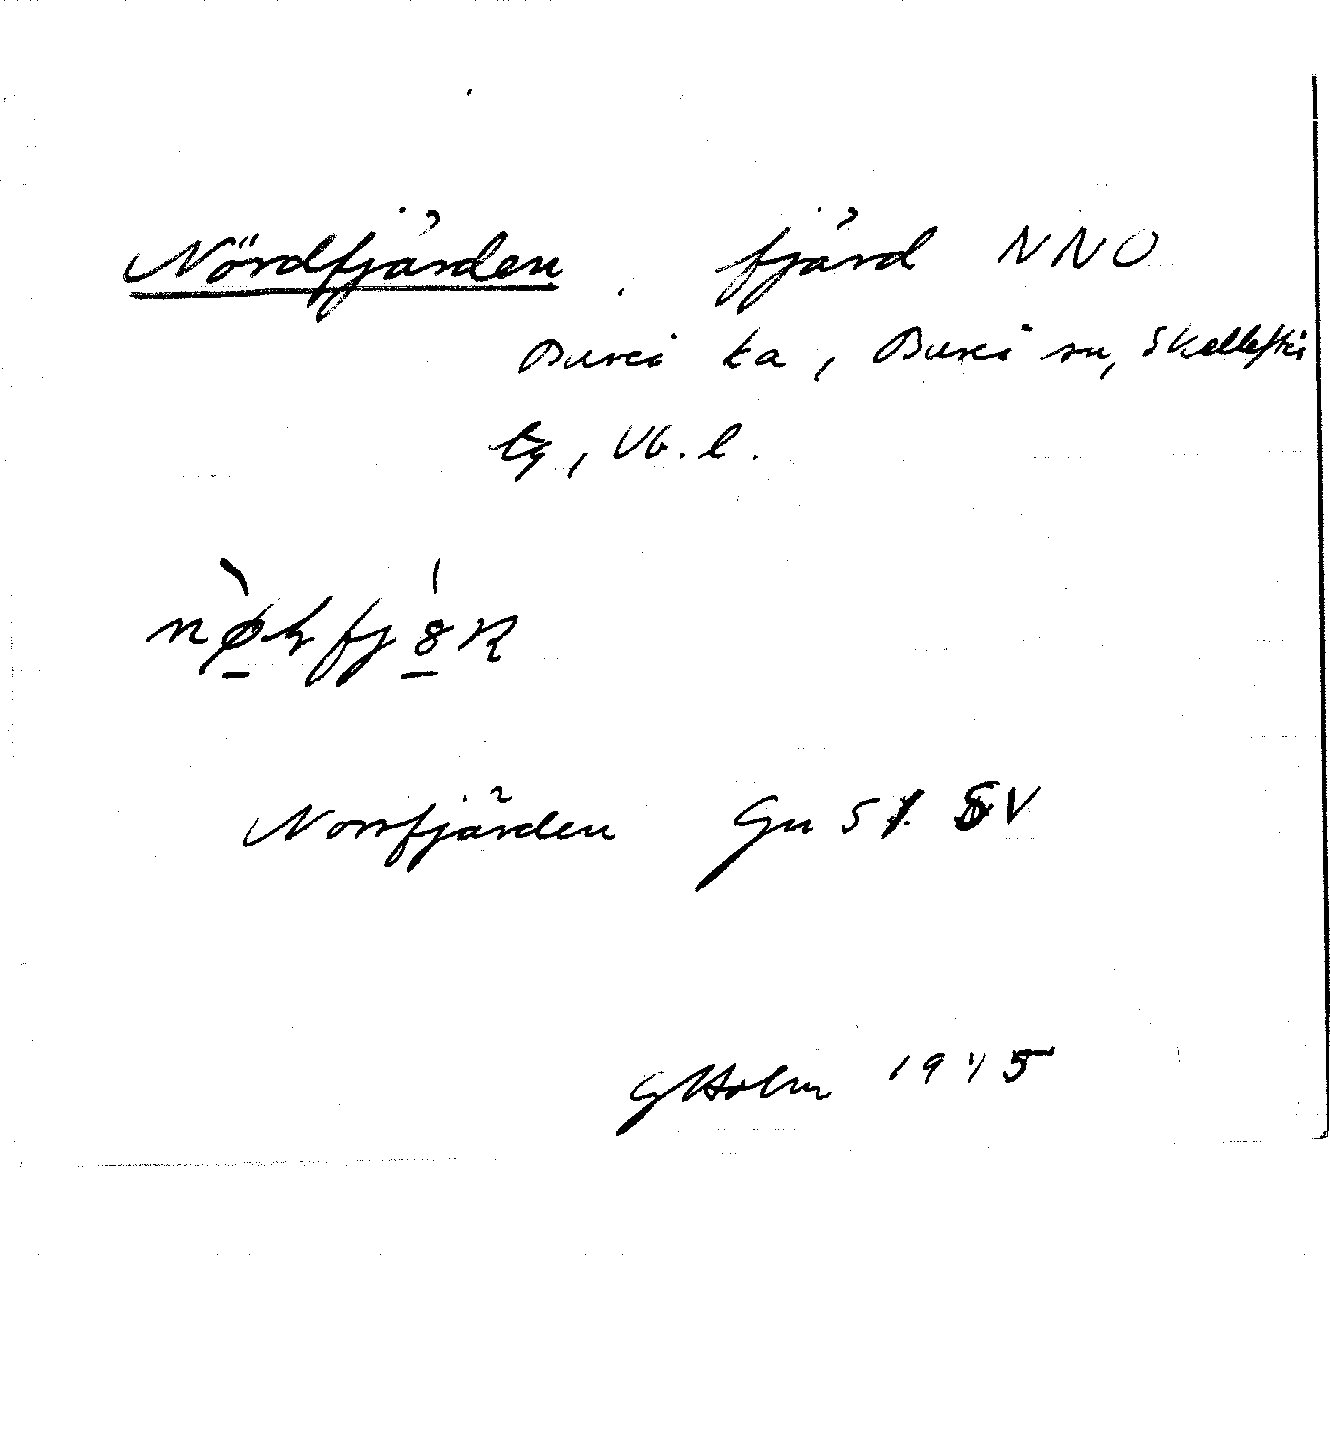 Nördfjärden. fjärd NNO
Bureå ka, Bureå sn, Skellefteå
tg, Vb. l.
Norrfjärden Gn 51 SV
GHolm 1945